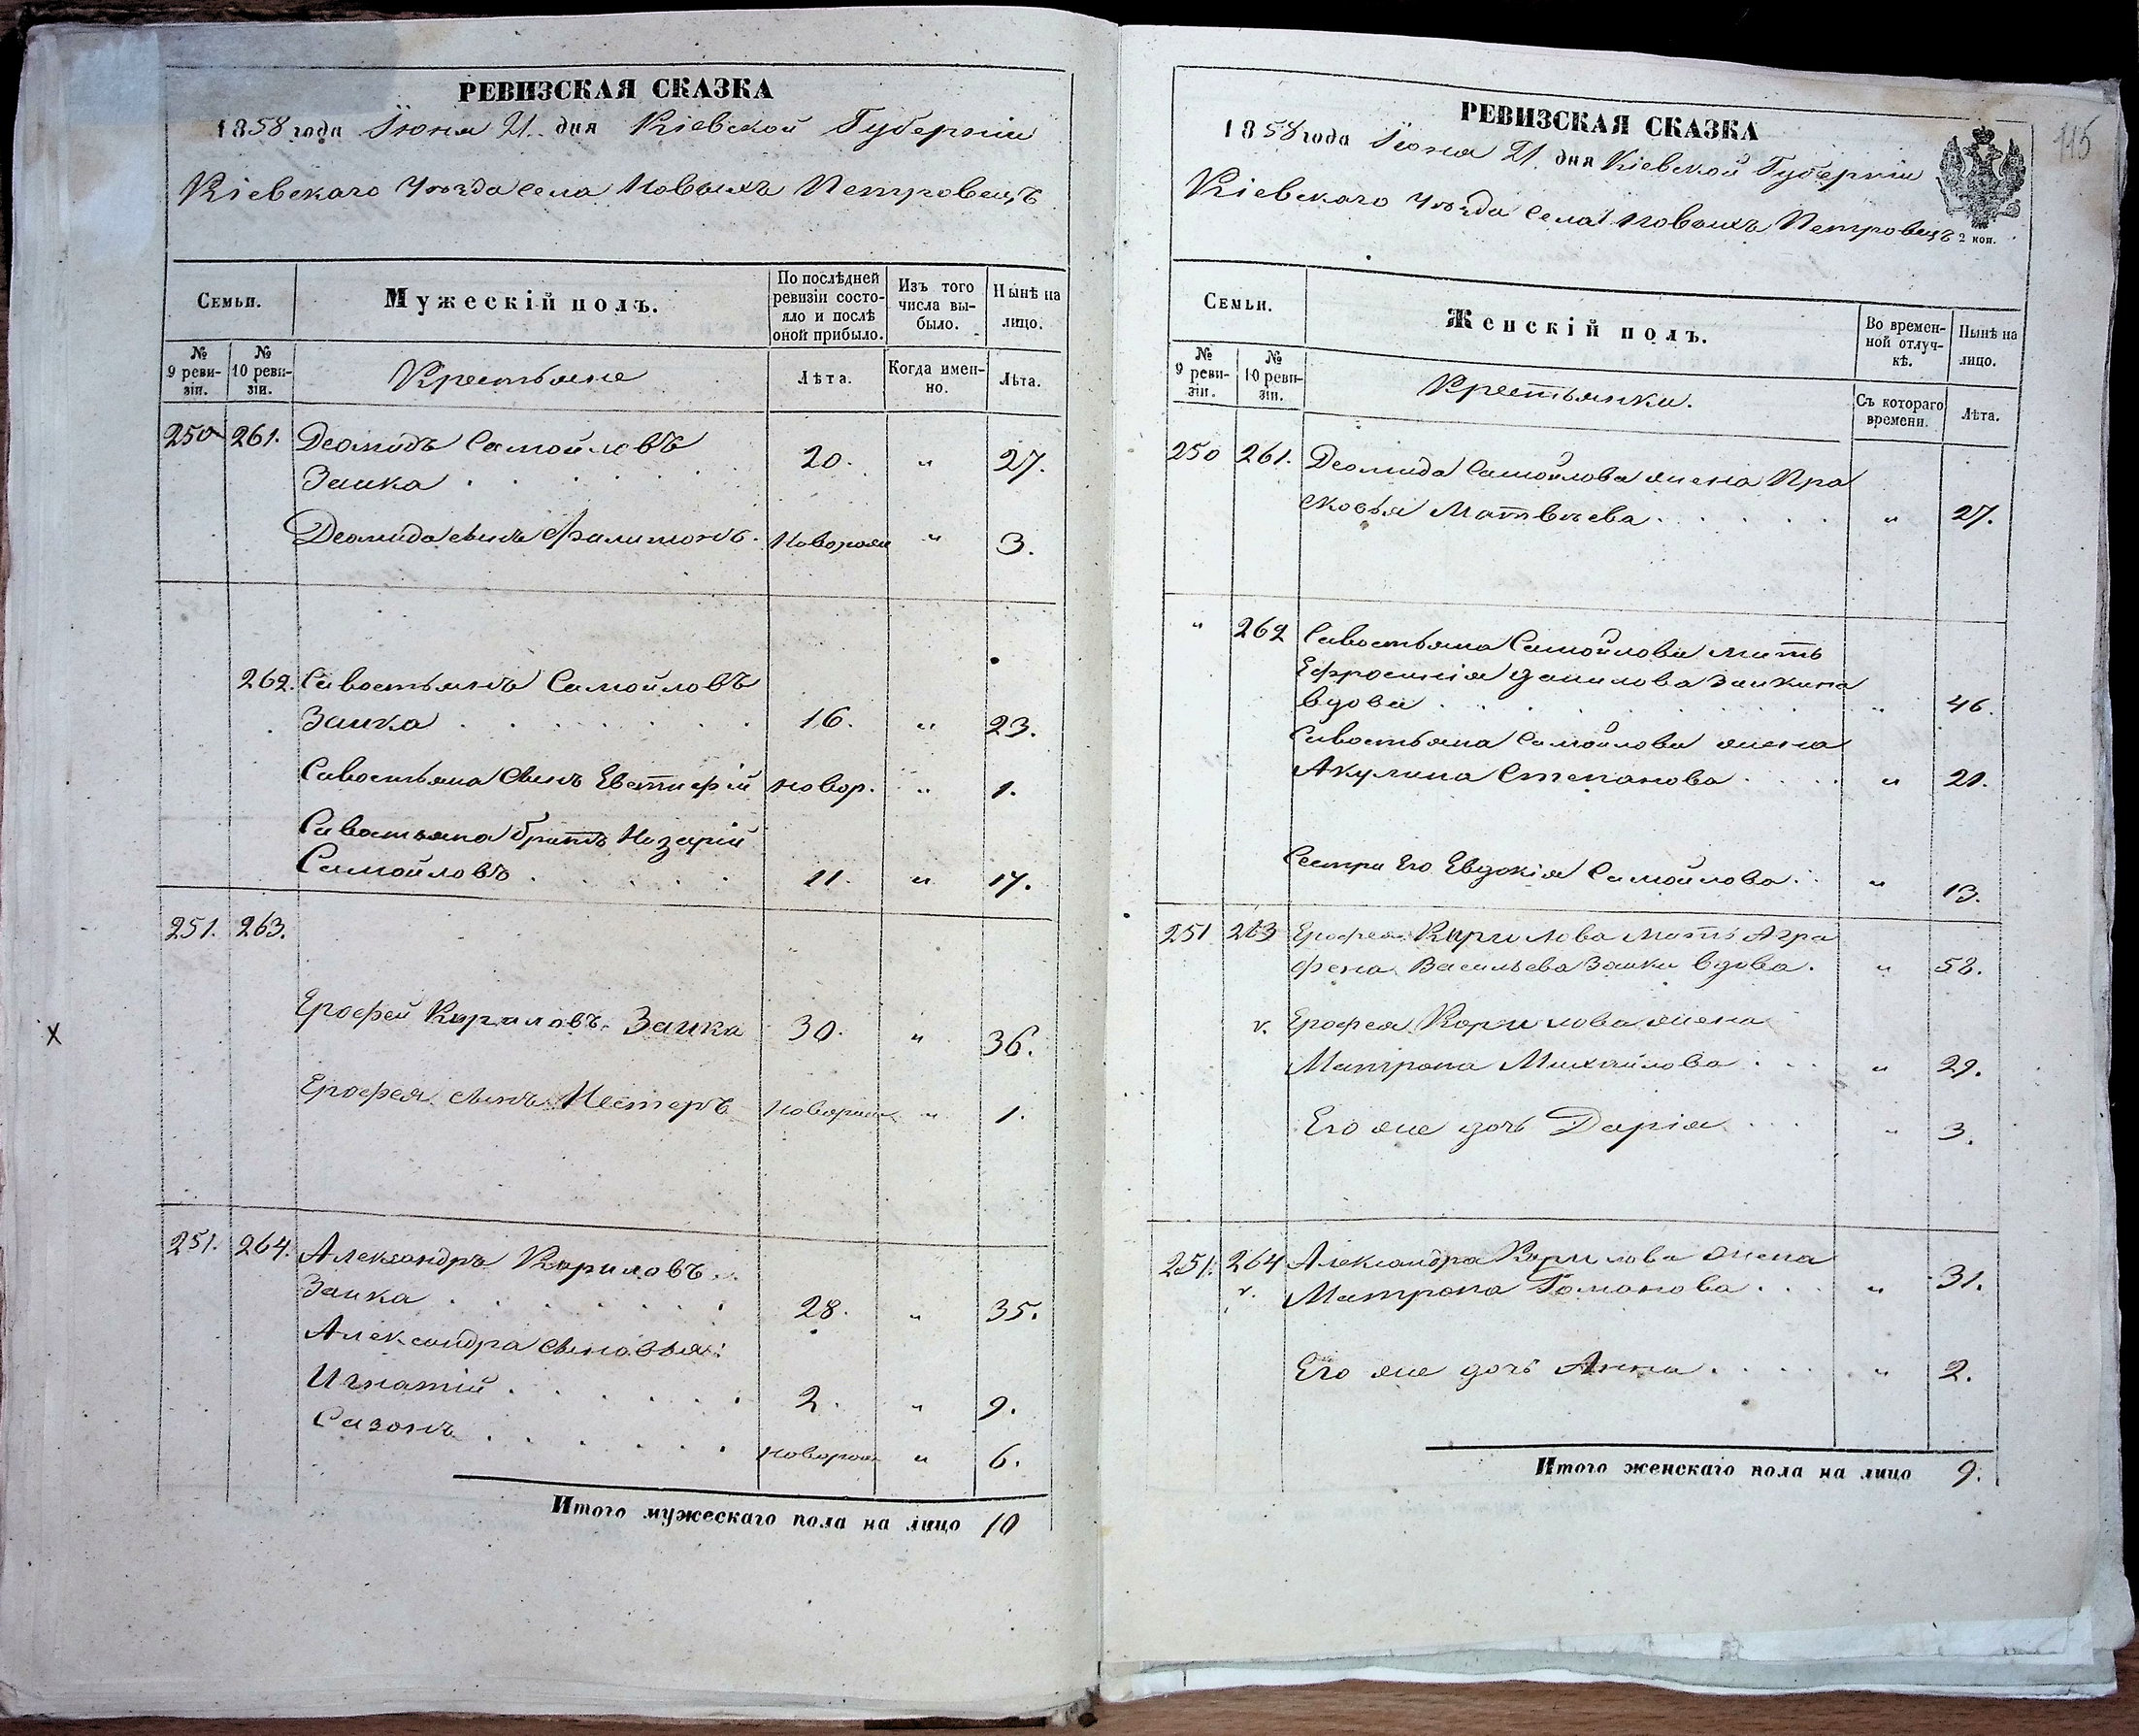 РЕВИЗСКАЯ СКАЗКА
1858 года Іюня 21. дня Кіевской Губерніи
Кіевскаго Уѣзда села Новыхъ Петровецъ
Семьи.
Мужескій полъ.
По послѣдней ревизіи состояло и послѣ оной прибыло.
Изъ того числа выбыло.
Нынѣ на лицо.
№ 9 ревизіи.
№ 10 ревизіи.
Крестьяне
Лѣта.
Когда именно.
Лѣта.
250 261. Деомидъ Самойловъ
Заика 20. " 27.
Деомида сынъ Филимонъ. Новорож " 3.
262. Савостьянъ Самойловъ
Заика 16. " 23.
Савостьяна сынъ Евстифій новор. " 1.
Савостьяна братъ Назарій
Самойловъ 11. " 17.
251. 263.
Ерофей Кириловъ Заика 30. " 36.
Ерофея сынъ Нестеръ " 1.
251. 264. Александръ Кириловъ
Заика 28. " 35.
Александра сыновья:
Игнатій 2. " 9.
Сазонъ новорож " 6.
Итого мужескаго пола на лицо 10
115
РЕВИЗСКАЯ СКАЗКА
1858 года Іюня 21 дня Кіевской Губерніи
Кіевскаго Уѣзда села Новыхъ Петровецъ
2 коп.
Семьи.
Женскій полъ.
Во временной отлучкѣ.
Нынѣ на лицо.
№ 9 ревизіи.
№ 10 ревизіи.
Крестьянки.
Съ котораго времени.
Лѣта.
250 261. Деомида Самойлова жена Пра
сковья Матвѣева " 27.
" 262 Савостьяна Самойлова мать
Ефросинія Данилова Заикина
вдова " 46.
Савостьяна Самойлова жена
Акулина Степанова " 21.
Сестра Его Евдокія Самойлова " 13.
251 263 Ерофея Кирилова мать Агра
фена Васильева Заики вдова. " 58.
v. Ерофея Кирилова жена
Матрона Михайлова " 29.
Его же дочь Дарія " 3.
251. 264 Александра Кирилова жена
v. Матрона Романова " 31.
Его же дочь Анна " 2.
Итого женскаго пола на лицо 9.
х